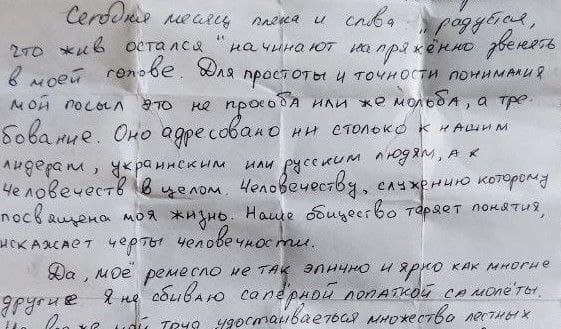 Сегодня месяц плена и слова "радуйся,
что жив остался" начинают напряжённо звенять
в моей голове. Для простоты и точности понимания
мой посыл это не прособа или же мольба, а тре-
бование. Оно адресовано ни столько к нашим
лидерам, украинским или русским людям, а к
человечеств в целом. Человечеству, служению которому
посвящена моя жизнь. Наше общество теряет понятия,
искажает черты человечности.
Да, моё ремесло не так эпично и ярко как многие
другие Я не сбиваю сапёрной лопаткой самолёты.
мой труд удостаиваеться множества лестных